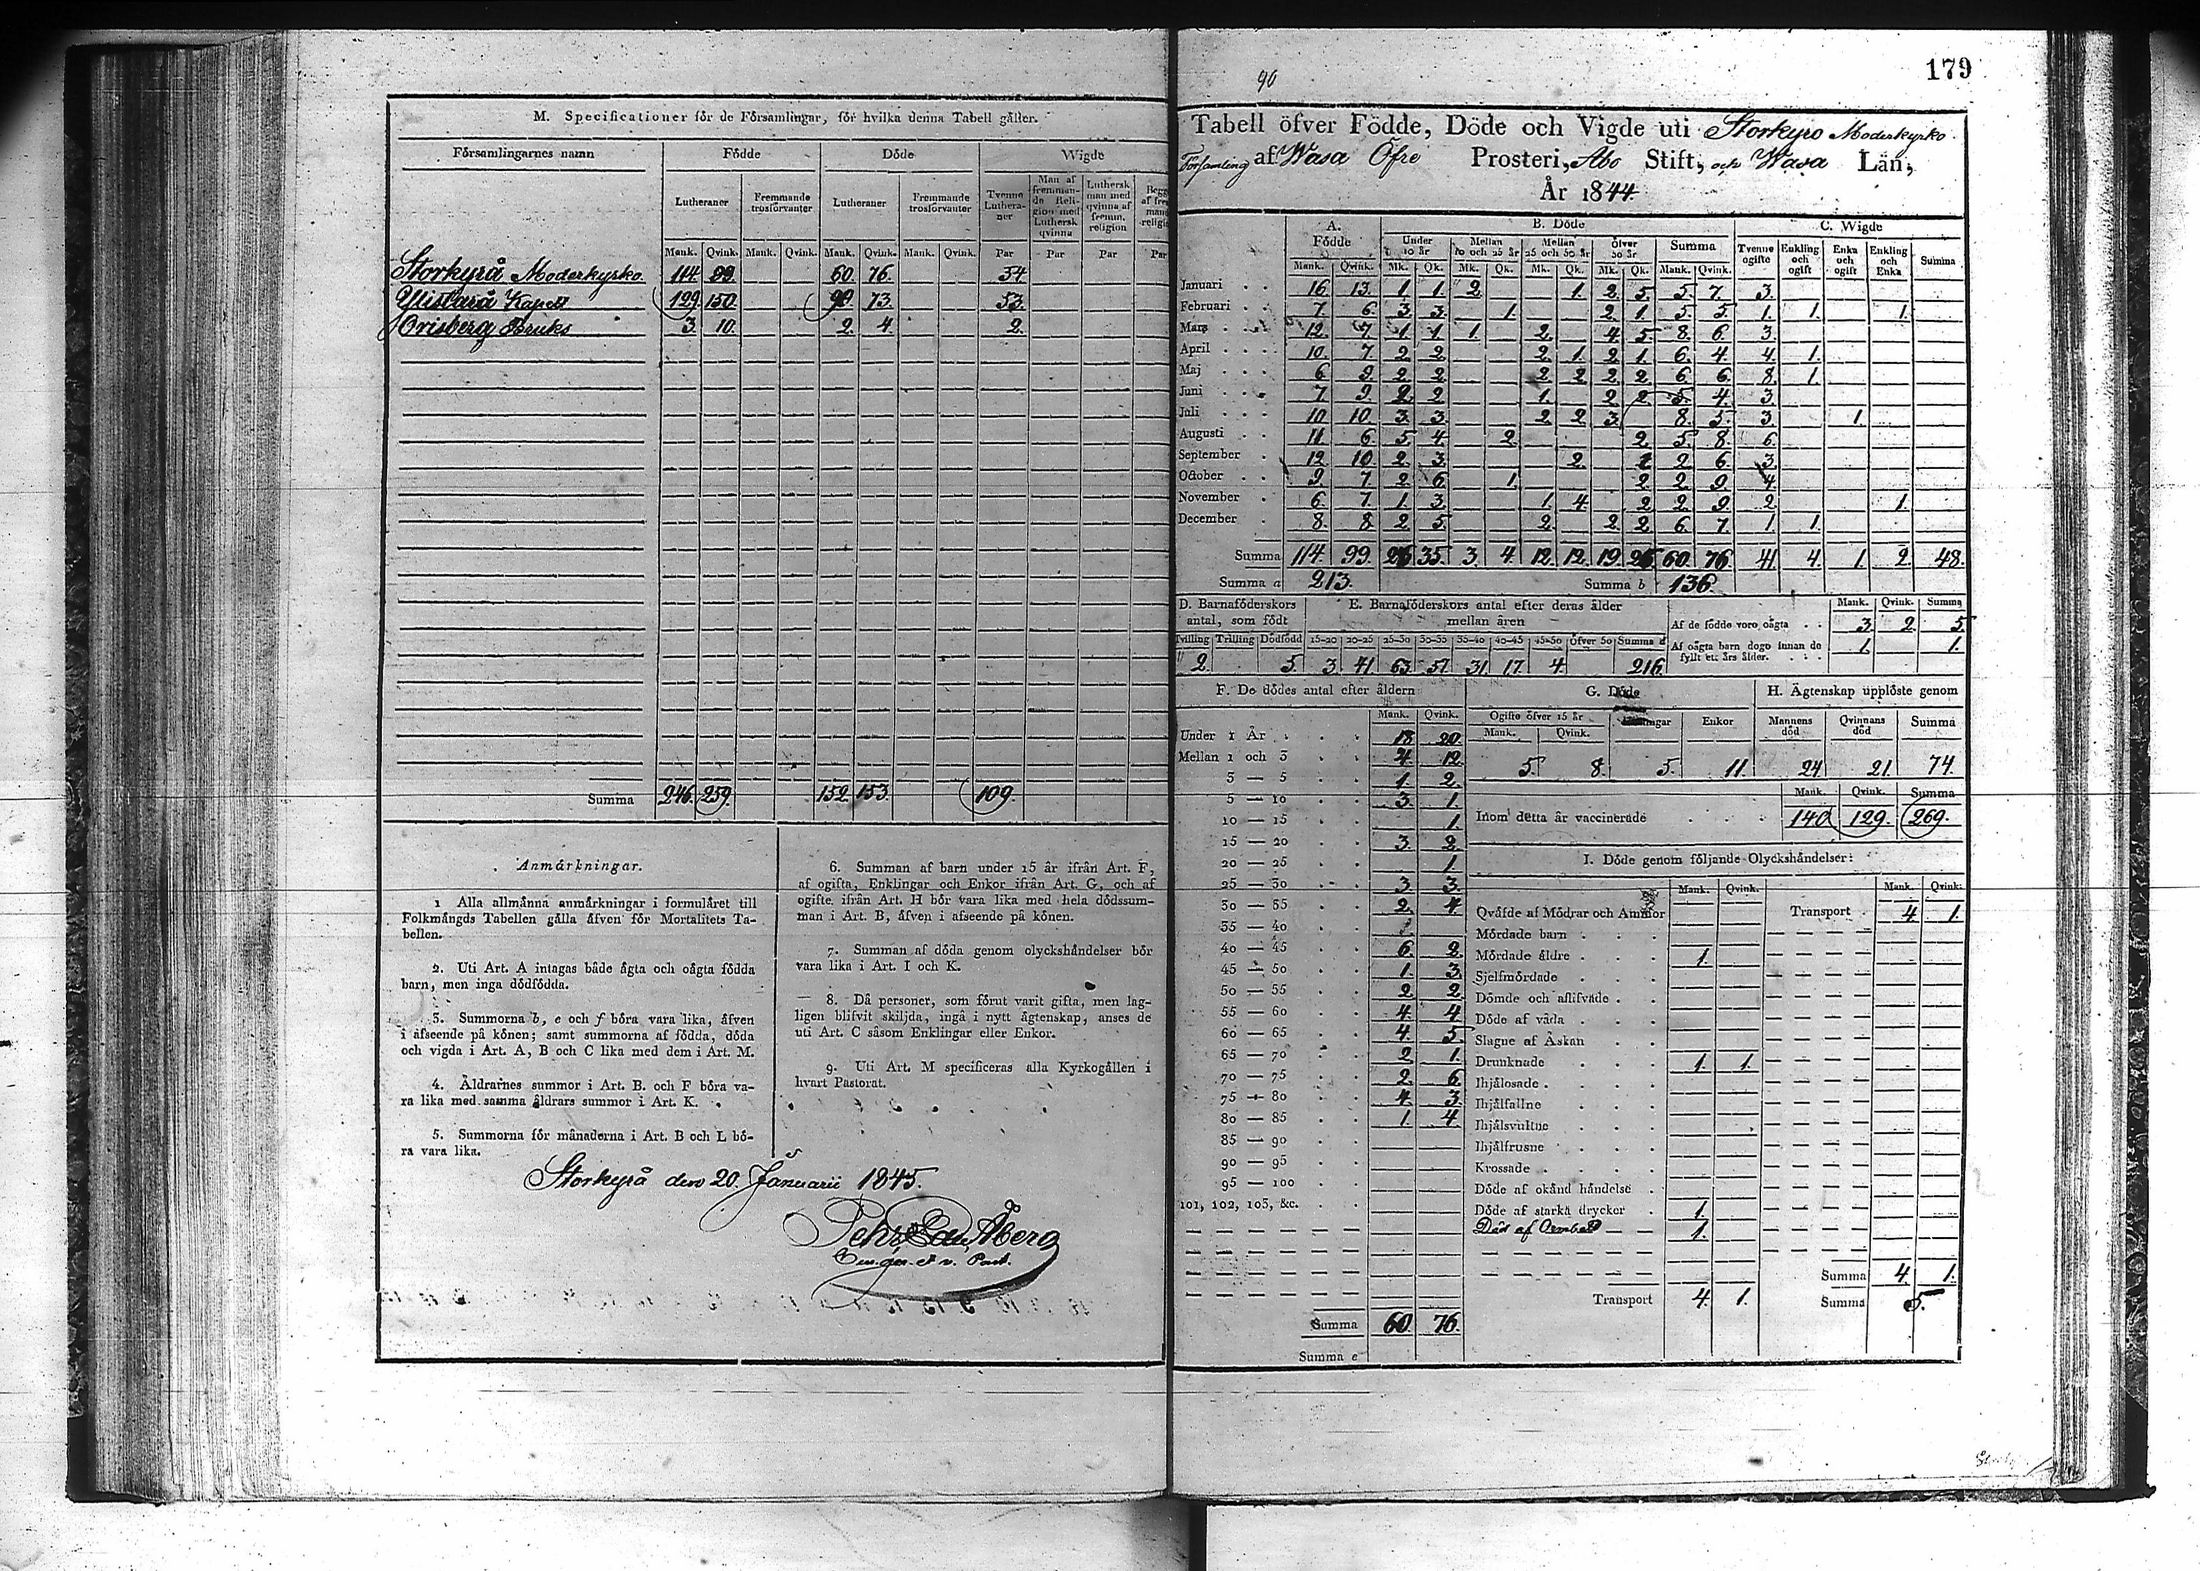 M. Specificationer för de Församlingar, för hvilka denna Tabell gäller.
Församlingarnes namn Födde Döde Wigde
Lutheraner Fremmande trosförvanter Lutheraner Fremmande trosförvanter Tvenne Lutheraner Man af fremmande Religion med Luthersk qvinna Luthersk man med qvinna af fremm. religion
Mank. Qvink. Mank. Qvink. Mank. Qvink. Mank. Qvink. Par Par Par Par
Storkyrå Moderkyrko. 114 99. 60. 76. 54
Ylistarå Kapell 129. 150. 90. 73. 53.
Orisberg Bruks 3. 10. 2. 4. 2.
Summa 246. 259. 152. 153. 109.
Anmärkningar.
1 Alla allmänna anmärkningar i formuläret till
Folkmängds Tabellen gälla äfven för Mortalitets Ta-
bellen.
2. Uti Art. A intagas både ägta och oägta födda
barn, men inga dödfödda.
3. Summorna b, e och f böra vara lika, äfven
i afseende på könen; samt summorna af födda, döda
och vigda i Art. A, B och C lika med dem i Art. M.
4. Åldrarnes summor i Art. B. och F böra va-
ra lika med samma åldrars summor i Art. K.
5. Summorna för månaderna i Art. B och L bö-
ra vara lika.
6. Summan af barn under 15 år ifrån Art. F,
af ogifta, Enklingar och Enkor ifrån Art. G, och af
ogifte ifrån Art. H bör vara lika med hela dödssum-
man i Art. B, äfven i afseende på könen.
7. Summan af döda genom olyckshändelser bör
vara lika i Art. I och K.
8. Då personer, som förut varit gifta, men lag-
ligen blifvit skiljda, ingå i nytt ägtenskap, anses de
uti Art. C såsom Enklingar eller Enkor.
9. Uti Art. M specificeras alla Kyrkogällen i
hvart Pastorat.
Storkyrå den 20. Januarii 1845.
Åberg
90
179
Tabell öfver Födde, Döde och Vigde uti Storkyro Moderkyrko
Församling af Wasa Öfre Prosteri, Åbo Stift, och Wasa Län,
År 1844.
A. Födde B. Döde C. Wigde
Under 10 år Mellan 10 och 25 år Mellan 25 och 50 år Öfver 50 år Summa Tvenne ogifte Enkling och ogift Enka och ogift Enkling och Enka Summa
Mank. Qvink. Mk. Qk. Mk. Qk. Mk. Qk. Mk. Qk. Mank. Qvink.
Januari 16 13. 1. 1. 2. 1. 2. 5. 5. 7. 3.
Februari 7. 6. 3. 3. 1. 2. 1. 5. 5. 1. 1. 1.
Mars 12. 7. 1. 1. 1. 2. 4. 5. 8. 6. 3.
April 10. 7. 2. 2. 2. 1. 2. 1. 6. 4. 4. 1.
Maj 6. 9. 2. 2. 2. 2. 2. 2. 6. 6. 8. 1.
Juni 7. 9. 2. 2. 1. 2. 2. 5. 4. 3.
Juli 10. 10. 3. 3. 2. 2. 3. 8. 5. 3. 1.
Augusti 11. 6. 5. 4. 2. 2. 5. 8. 6.
September 12. 10. 2. 3. 2. 1. 2. 6. 3.
October 9. 7. 2. 6. 1. 2. 2. 9. 4.
November 6. 7. 1. 3. 1. 4. 2. 2. 9. 2. 1.
December 8. 8. 2. 5. 2. 2. 2. 6. 7. 1. 1.
Summa 114. 99. 26 35. 3. 4. 12. 12. 19. 25. 60. 76. 41 4. 1. 2. 48.
Summa a 213. Summa b 136.
D. Barnaföderskors antal, som födt E. Barnaföderskors antal efter deras ålder mellan åren Mank. Qvink. Summa
Tvilling Trilling Dödfödd 15-20 20-25 25-30 30-35 35-40 40-45 45-50 Öfver 50 Summa d
2. 5. 3. 41 63. 57. 31. 17. 4. 216.
Af de födde voro oägta 3. 2. 5.
Af oägta barn dogo innan de fyllt ett års ålder. 1. 1.
F. De dödes antal efter åldern
Mank. Qvink.
Under 1 År 18 20.
Mellan 1 och 3 4. 12.
3 — 5 1. 2.
5 — 10 3. 1.
10 — 15 1.
15 — 20 3. 2.
20 — 25 1
25 — 30 3 3.
30 — 35 2. 4.
35 — 40
40 — 45 6. 2.
45 — 50 1. 3.
50 — 55 2. 2.
55 — 60 4. 4
60 — 65 4. 5.
65 — 70 2. 1.
70 — 75 2. 6.
75 — 80 4. 3.
80 — 85 1. 4.
85 — 90
90 — 95
95 — 100
101, 102, 103, &c.
Summa 60. 76.
Summa e
G. Döde H. Ägtenskap upplöste genom
Ogifte öfver 15 år Enkor Mannens död Qvinnans död Summa
Mank. Qvink.
5. 8. 5. 11. 24 21. 74.
Mank. Qvink. Summa
Inom detta år vaccinerade 140. 129. 269.
I. Döde genom följande Olyckshändelser:
Mank. Qvink. Mank. Qvink.
Qväfde af Mödrar och Ammor Transport 4. 1.
Mördade barn
Mördade äldre 1.
Sjelfmördade
Dömde och aflifvade
Döde af våda
Slagne af Åskan
Drunknade 1. 1.
Ihjälosade
Ihjälfallne
Ihjälsvultne
Ihjälfrusne
Krossade
Döde af okänd händelse
Döde af starka drycker 1.
Död af 1.
Summa 4. 1.
Transport 4. 1. Summa 5.